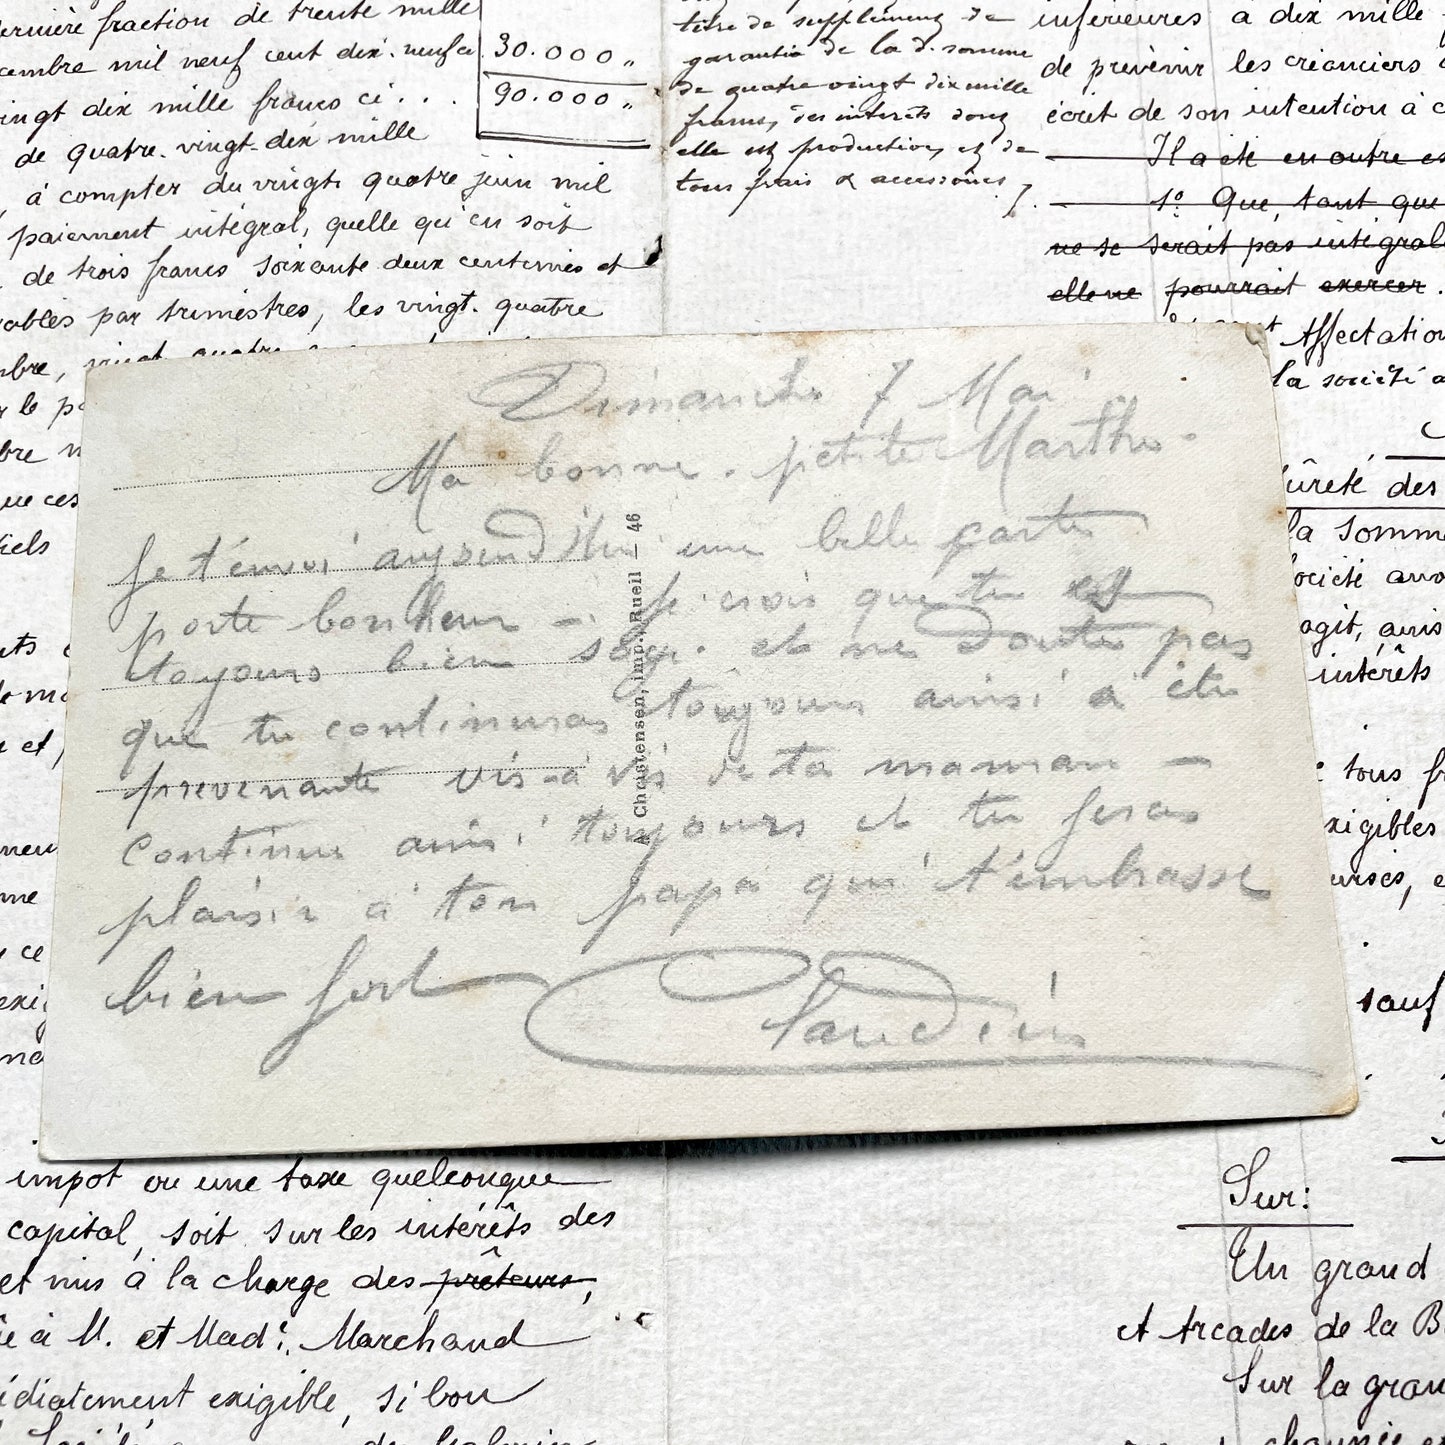 dernière fraction de trente mille
cembre mil neuf cent dix-neuf ci
30.000 "
vingt dix mille francs ci . . .
90.000 "
de quatre-vingt-dix mille
à compter du vingt quatre juin mil
paiement intégral, quelle qu'en soit
de trois francs soixante deux centimes et
ables par trimestres, les vingt-quatre
mbre, vingt quatre
r le p
bre n
que ces
tiels
et,
ne
ce
exi
titre de supplément de
garantie de la d. somme
de quatre-vingt dix mille
francs, des intérêts dont
elle est productive, et de
tous frais & accessoires
inférieures à dix mille
de prévenir les créanciers
écrit de son intention à
Il a été en outre
1º Que, tant que
ne se serait pas intégral
elle ne pourrait exercer.
Affectation
la société a
ûreté des
la somm
ociété
agit, ains
intérêts
tous fr
xigibles
sauf
Dimanche 7 Mai
Ma bonne petite Marthe -
Je t'envoi aujourd'hui une belle carte
porte bonheur - Je crois que tu es
toujours bien sage. et ne doute pas
que tu continuras toujours ainsi à être
prevenante vis-à vis de ta maman -
Continue ainsi toujours et tu feras
plaisir à ton papa qui t'embrasse
bien fort
A. Christensen, imp., Rueil - 46
impôt ou une taxe quelconque
capital, soit sur les intérêts des
et mis à la charge des prêteurs,
à M. et Made. Marchand
édiatement exigible, si bon
Sur:
Un grand
et Arcades de la B
Sur la gran